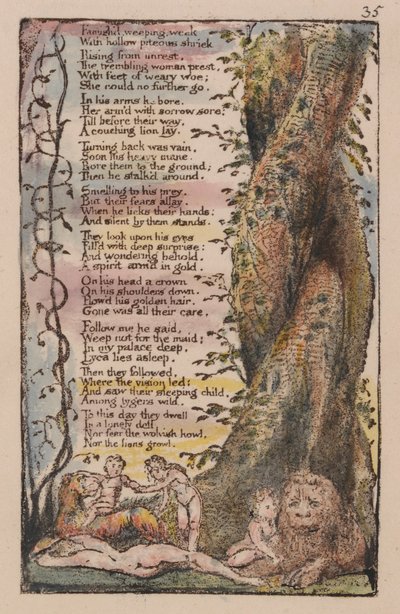 35
Famish'd, weeping, weak
With hollow piteous shriek
Rising from unrest,
The trembling woman prest,
With feet of weary woe;
She could no further go.
In his arms he bore,
Her arm'd with sorrow sore;
Till before their way,
A couching lion lay.
Turning back was vain,
Soon his heavy mane,
Bore them to the ground;
Then he stalk'd around.
Smelling to his prey,
But their fears allay,
When he licks their hands;
And silent by them stands.
They look upon his eyes
Fill'd with deep surprise:
And wondering behold,
A spirit arm'd in gold.
On his head a crown
On his shoulders down,
Flow'd his golden hair.
Gone was all their care.
Follow me he said,
Weep not for the maid;
In my palace deep,
Lyca lies asleep.
Then they followed,
Where the vision led:
And saw their sleeping child,
Among tygers wild.
To this day they dwell
In a lonely dell
Nor fear the wolvish howl,
Nor the lions growl.